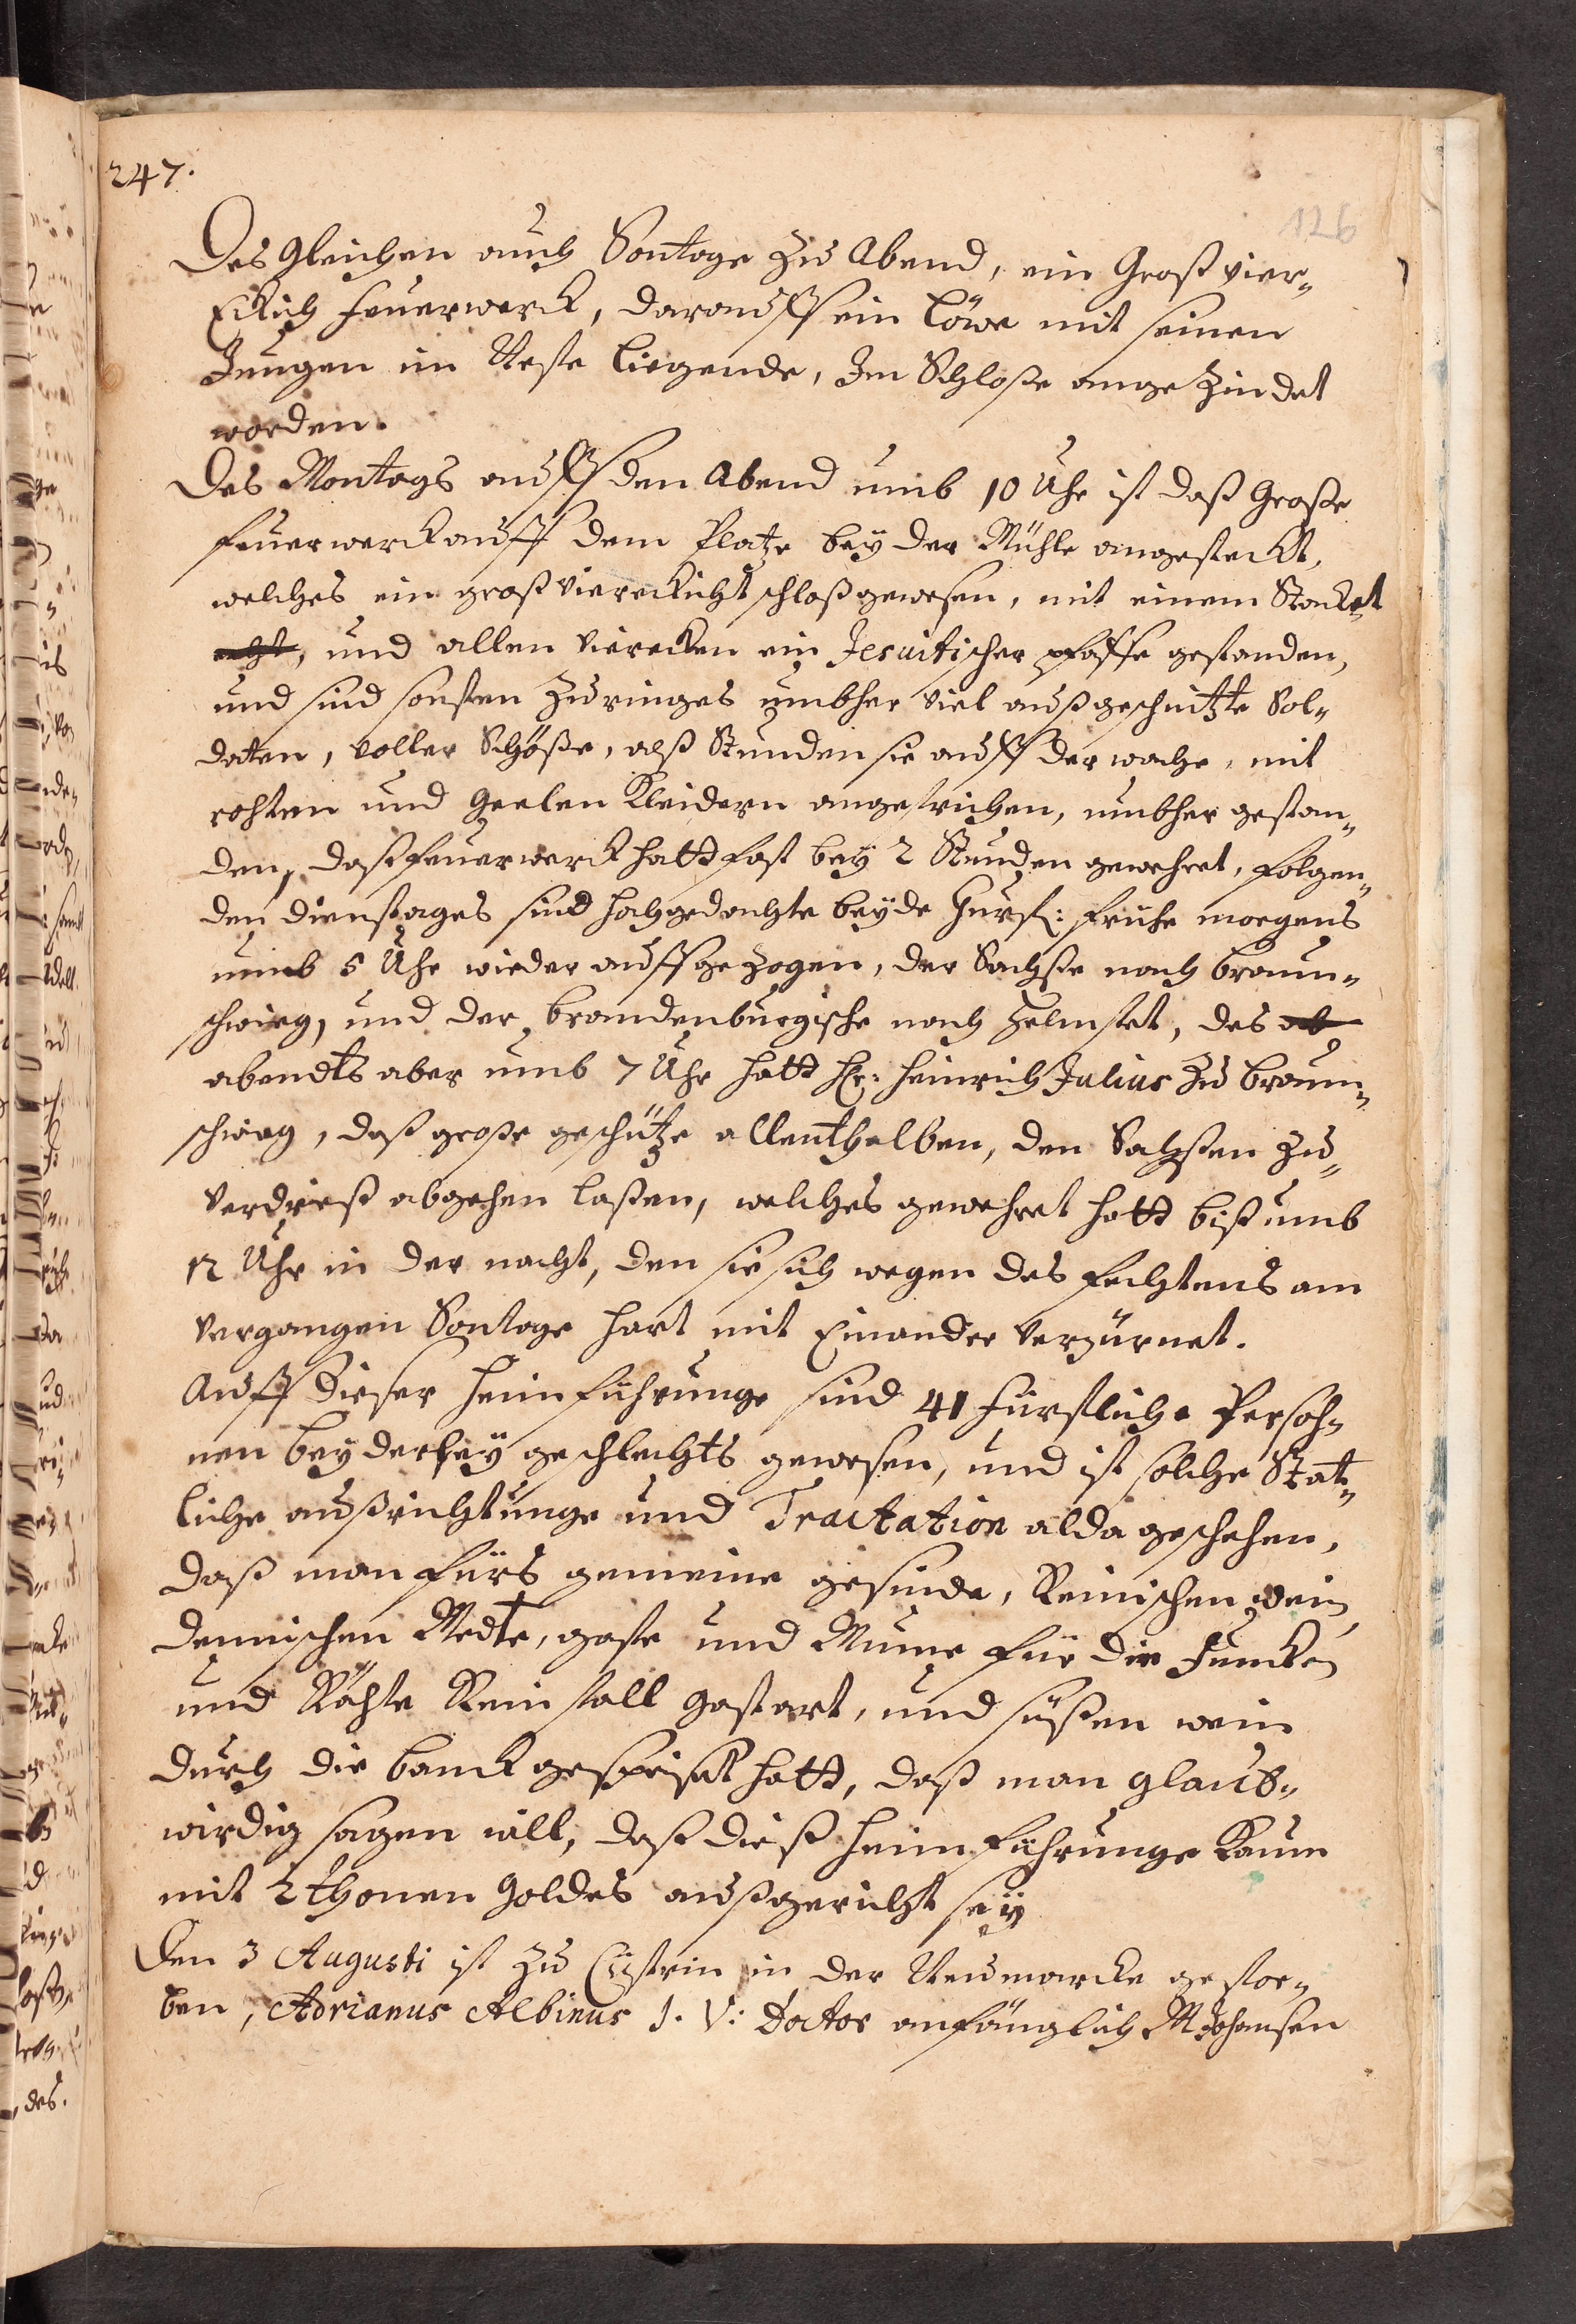 247.
126
Des gleichen auch Sontage zu Abend, ein Groß vier„
Eckich feuerwerck, darauff ein Löwe mit seinen
Jungen im Neste liegende, Im Schloße ange zündet
worden.
Des Montags auff den Abend umb 10 Uhr ist daß Große
feuerwerck auff dem Platze bey der Mühle angesteckt,
welches ein groß viereckicht schloß gewesen, mit einem Stacket
und allen vierecken ein Jesuitischer pfaffe gestanden,
und sind sonsten zu ringes umbher viel außgeschnitzte Sol„
daten, voller Schöße, alß Stunden sie auff der wache, mit
rohten und Geelen Kleidern angestrichen, umbher gestan„
den, daß feuerwerck hatt fast bey 2 Stunden gewehret, folgen„
den dienstages sind hochgedachte beyde Churf: frühe morgens
umb 5 Uhr wieder auffgezogen, der Sachße nach braun„
schwieg, und der brandenburgische nach Helmstet, des ab
abendts aber umb 7 Uhr hatt Hr: Heinrich Julius zu braun„
schwieg, daß große geschütze allenthalben, den Sachßen zu„
verdrieß abgehen laßen, welches gewehret hatt biß umb
12 Uhr in der nacht, den sie sich wegen des fechtens am
vergangen Sontage hart mit Einander verzürnet.
Auff dieser heimführunge sind 41 fürstliche Persoh„
nen beyderley geschlechts gewesen, und ist solche Stat„
liche außrichtunge und Tractation alda geschehen,
daß man fürs gemeine gesinde, Reinischen wein
dennischen Medte, gose und Mume für die Juncker
und Rähte Reinfall gastart, und süßen wein
durch die banck gespeiset hatt, daß man glaub„
wirdig sagen will, daß dieß heimführunge kaum
mit 2 thonen Goldes außgericht sey
Den 3 Augusti ist zu Cüstrin in der Neumarcke gestor„
ben, Adrianus Albinus J. V: Doctor anfänglich M Johansen